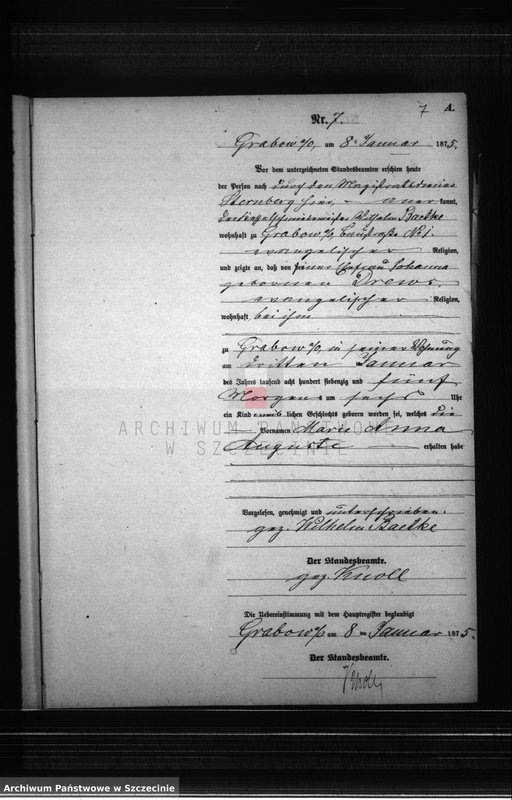 7 A.
Nr. 7.
Grabow a/O, am 8. Januar 1875.
Vor dem unterzeichneten Standesbeamten erschien heute
der Person nach durch den Magistrats
Sternberg hier, anerkannt,
der Kesselschmiedemeister Wilhelm Baetke
wohnhaft zu Grabow a/O, No 1.
evangelischer Religion,
und zeigte an, daß von seiner Ehefrau Johanna
geborenen Drews,
evangelischer Religion,
wohnhaft bei ihm
zu Grabow a/O, in seiner Wohnung
am dritten Januar
des Jahres tausend acht hundert siebenzig und fünf
Morgens um sechs Uhr
ein Kind weiblichen Geschlechts geboren worden sei, welches die
Vornamen Marie Anna
Auguste erhalten habe
ARCHIWUM PAŃSTWOWE
W SZCZECINIE
Vorgelesen, genehmigt und unterschrieben.
gez. Wilhelm Baetke
Der Standesbeamte.
gez. Knoll
Die Uebereinstimmung mit dem Hauptregister beglaubigt
Grabow a/O am 8 ten Januar 1875.
Der Standesbeamte.
Knoll
Archiwum Państwowe w Szczecinie